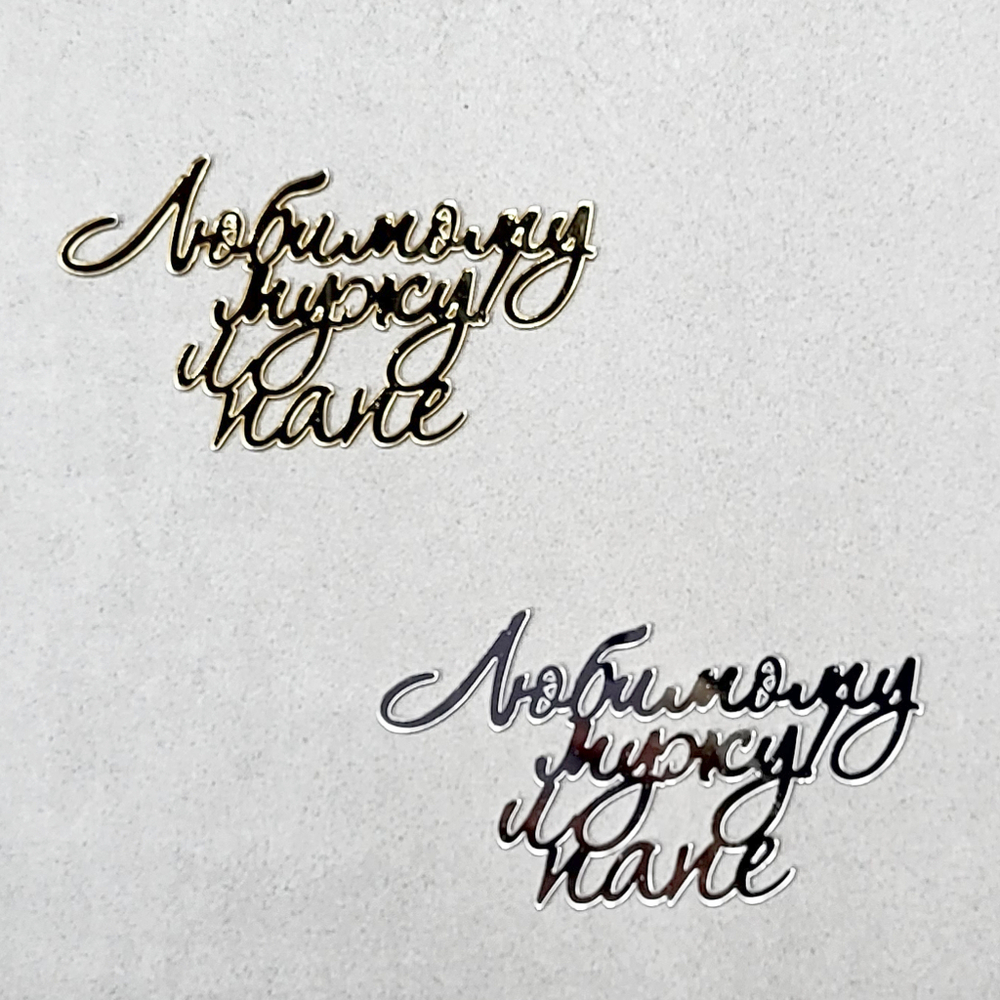 Любимому
мужу
и
папе
Любимому
мужу
и
папе